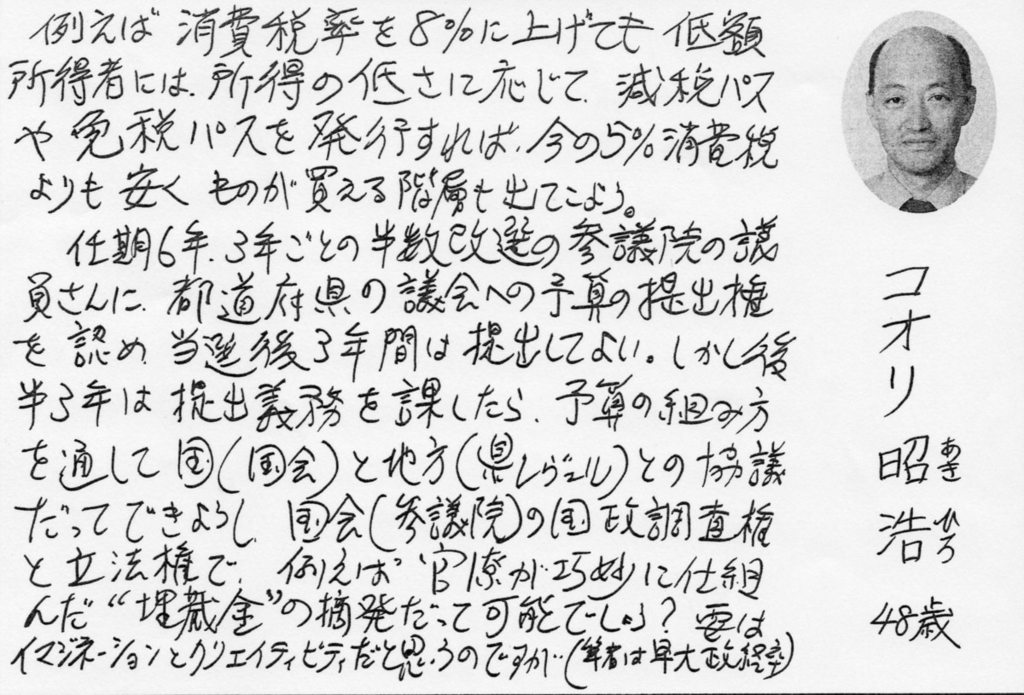 例えば 消費税率を8%に上げても 低額
所得者には、所得の低さに応じて、減税パス
や免税パスを発行すれば、今の5%消費税
よりも 安く ものが買える階層も出てこよう。
任期6年、3年ごとの半数改選の参議院の議
員さんに、都道府県の議会への予算の提出権
を認め、当選後3年間は提出してよい。しかし後
半3年は提出義務を課したら、予算の組み方
を通して国(国会)と地方(県レヴェル)との協議
だってできようし、国会(参議院)の国政調査権
と立法権で、例えば官僚が巧妙に仕組
んだ“埋蔵金”の摘発だって可能でしょう? 要は
イマジネーションとクリエイティビティだと思うのですが…(筆者は早大政経卒)
コオリ昭浩 48歳
あき ひろ